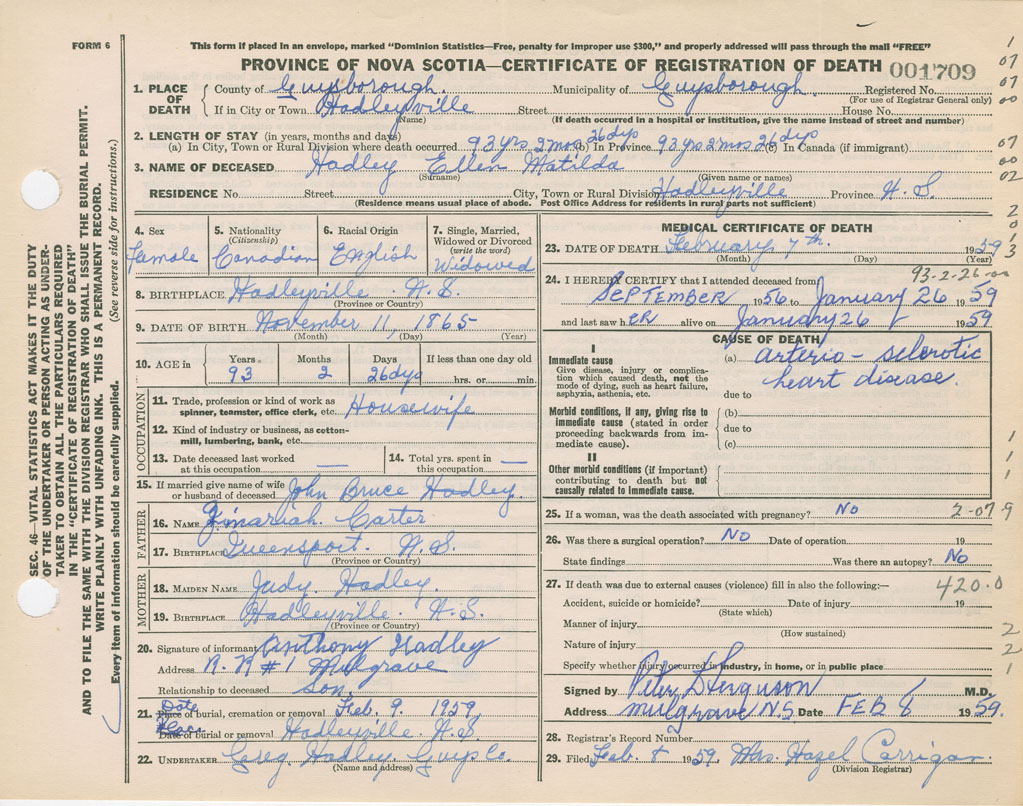 FORM 6
This form if placed in an envelope, marked "Dominion Statistics—Free, penalty for improper use $300," and properly addressed will pass through the mail "FREE"
PROVINCE OF NOVA SCOTIA—CERTIFICATE OF REGISTRATION OF DEATH 001709
1. PLACE OF DEATH County of Guysborough Municipality of Guysborough Registered No.
(For use of Registrar General only)
If in City or Town Hadleyville Street House No.
(Name) (If death occurred in a hospital or institution, give the name instead of street and number)
2. LENGTH OF STAY (in years, months and days)
(a) In City, Town or Rural Division where death occurred 93 yrs 2 mos 26 dys (b) In Province 93 yrs 2 mos 26 dys (c) In Canada (if immigrant)
3. NAME OF DECEASED Hadley Ellen Matilda
(Surname) (Given name or names)
RESIDENCE No. Street City, Town or Rural Division Hadleyville Province N.S.
(Residence means usual place of abode. Post Office Address for residents in rural parts not sufficient)
4. Sex Female
5. Nationality (Citizenship) Canadian
6. Racial Origin English
7. Single, Married, Widowed or Divorced (write the word) Widowed
8. BIRTHPLACE Hadleyville N.S.
(Province or Country)
9. DATE OF BIRTH November 11, 1865
(Month) (Day) (Year)
10. AGE in Years Months Days If less than one day old
93 2 26 dys hrs. or min.
OCCUPATION
11. Trade, profession or kind of work as spinner, teamster, office clerk, etc. Housewife
12. Kind of industry or business, as cotton-mill, lumbering, bank, etc.
13. Date deceased last worked at this occupation —
14. Total yrs. spent in this occupation —
15. If married give name of wife or husband of deceased John Bruce Hadley
FATHER
16. NAME Zimariah Carter
17. BIRTHPLACE Queensport N.S.
(Province or Country)
MOTHER
18. MAIDEN NAME Judy Hadley
19. BIRTHPLACE Hadleyville N.S.
(Province or Country)
20. Signature of informant Anthony Hadley
Address R.R #1 Mulgrave
Relationship to deceased Son
21. Date Place of burial, cremation or removal Feb. 9. 1959
Place Date of burial or removal Hadleyville N.S.
22. UNDERTAKER Greg Hadley Guys. Co.
(Name and address)
MEDICAL CERTIFICATE OF DEATH
23. DATE OF DEATH February 7th 1959
(Month) (Day) (Year)
93-2-26-00
24. I HEREBY CERTIFY that I attended deceased from
SEPTEMBER 1956 to January 26 1959
and last saw hER alive on January 26 1959
CAUSE OF DEATH
I
Immediate cause
Give disease, injury or complication which caused death, not the mode of dying, such as heart failure, asphyxia, asthenia, etc.
(a) arterio-sclerotic heart disease.
due to
Morbid conditions, if any, giving rise to immediate cause (stated in order proceeding backwards from immediate cause).
(b)
due to
(c)
II
Other morbid conditions (if important) contributing to death but not causally related to immediate cause.
25. If a woman, was the death associated with pregnancy? No 2-07 9
26. Was there a surgical operation? No Date of operation 19
State findings Was there an autopsy? No
27. If death was due to external causes (violence) fill in also the following:— 420.0
Accident, suicide or homicide? Date of injury 19
(State which)
Manner of injury
(How sustained)
Nature of injury
Specify whether injury occurred in industry, in home, or in public place
Signed by Peter D Ferguson M.D.
Address Mulgrave N.S Date FEB 8 1959.
28. Registrar's Record Number
29. Filed Feb. 8 1959. Mrs. Hazel Carrigan
(Division Registrar)
1
07
07
00
07
00
02
2
0
1
3
1
1
1
2
2
1
SEC. 46—VITAL STATISTICS ACT MAKES IT THE DUTY
OF THE UNDERTAKER OR PERSON ACTING AS UNDER-
TAKER TO OBTAIN ALL THE PARTICULARS REQUIRED
IN THE "CERTIFICATE OF REGISTRATION OF DEATH"
AND TO FILE THE SAME WITH THE DIVISION REGISTRAR WHO SHALL ISSUE THE BURIAL PERMIT.
WRITE PLAINLY WITH UNFADING INK. THIS IS A PERMANENT RECORD.
Every item of information should be carefully supplied. (See reverse side for instructions.)